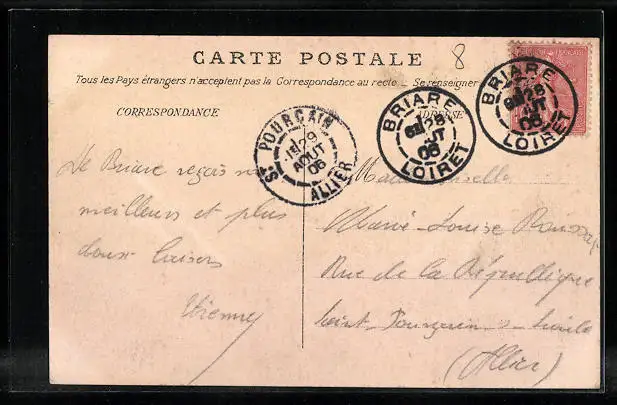 CARTE POSTALE
8
Tous les Pays étrangers n'acceptent pas la Correspondance au recto. - Se renseigner
CORRESPONDANCE
ADRESSE
BRIARE
28
AOUT
06
LOIRET
BRIARE
28
AOUT
06
LOIRET
ST POURÇAIN
29
AOUT
06
ALLIER
De Briare reçois
meilleurs et plus
doux baisers
Etienne
Mademoiselle
Marie-Louise
Rue de la République
Saint-Pourçain s- Sioule
(Allier)